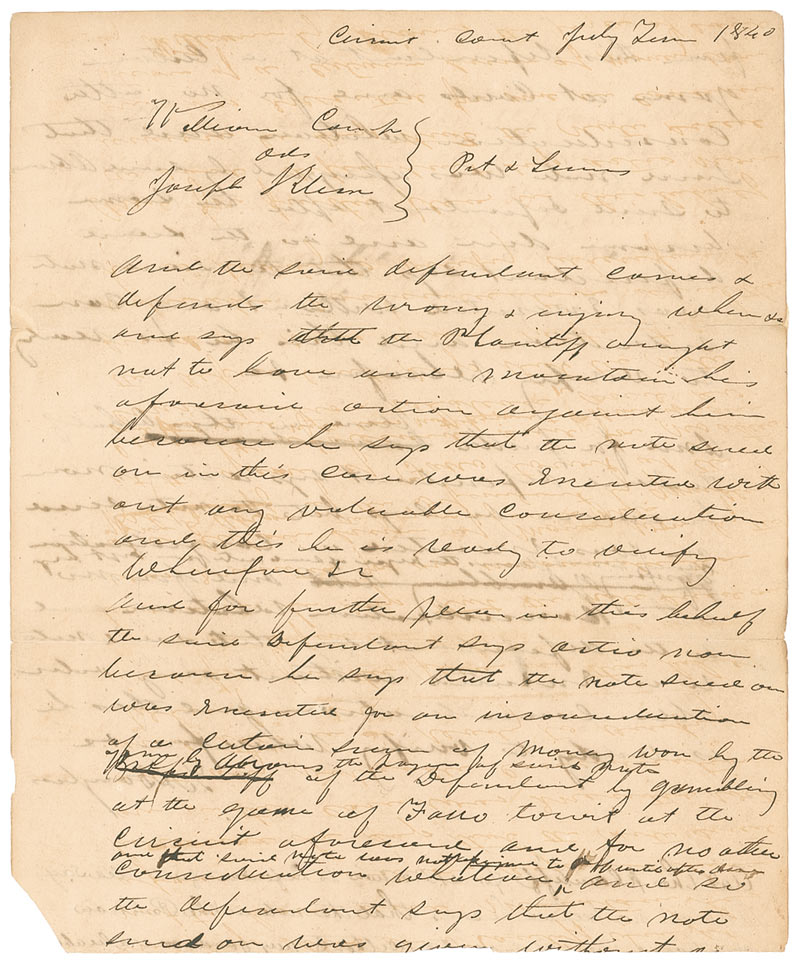 Circuit Court July Term 1840
William Camp
ads
Joseph Klein
Pet & Sums
And the said defendant comes &
defends the wrong & injury when &c
and says that the Plaintiff ought
not to have and maintain his
aforesaid action against him
because he says that the note sued
on in this case was executed with
out any valuable consideration
and this he is ready to verify
Wherefore &c
And for further plea in this behalf
the said Defendant says actio non
because he says that the note sued on
was executed for an inconsideration
of a certain sum of money won by the
Abrams the payee of said note
of the Defendant by gambling
at the game of Faro towit at the
Circuit aforesaid and for no other
and that said note was not to until after
consideration whatever and so
the defendant says that the note
sued on was given without